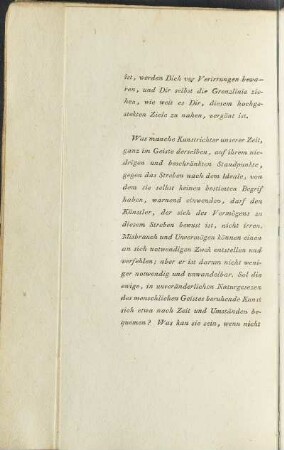 ist, werden Dich vor Verirrungen bewa-
ren, und Dir selbst die Grenzlinie zie-
hen, wie weit es Dir, diesem hochge-
stekten Ziele zu nahen, vergönt ist.
Was manche Kunstrichter unserer Zeit,
ganz im Geiste derselben, auf ihrem nie-
drigen und beschränkten Standpunkte,
gegen das Streben nach dem Ideale, von
dem sie selbst keinen bestimten Begrif
haben, warnend einwenden, darf den
Künstler, der sich des Vermögens zu
diesem Streben bewust ist, nicht irren.
Misbrauch und Unvermögen können einen
an sich notwendigen Zwek entstellen und
verfehlen; aber er ist darum nicht weni-
ger notwendig und unwandelbar. Sol die
ewige, in unveränderlichen Naturgesezen
des menschlichen Geistes beruhende Kunst
sich etwa nach Zeit und Umständen be-
quemen? Was kan sie sein, wenn nicht